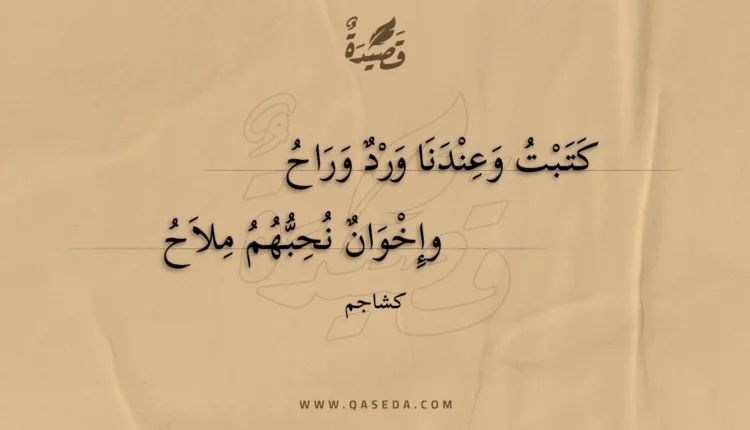 قَصِيدَةٌ
كَتَبْتُ وَعِنْدَنَا وَرْدٌ وَرَاحُ
وإِخْوَانٌ نُحِبُّهُمُ مِلاَحُ
كشاجم
WWW.QASEDA.COM